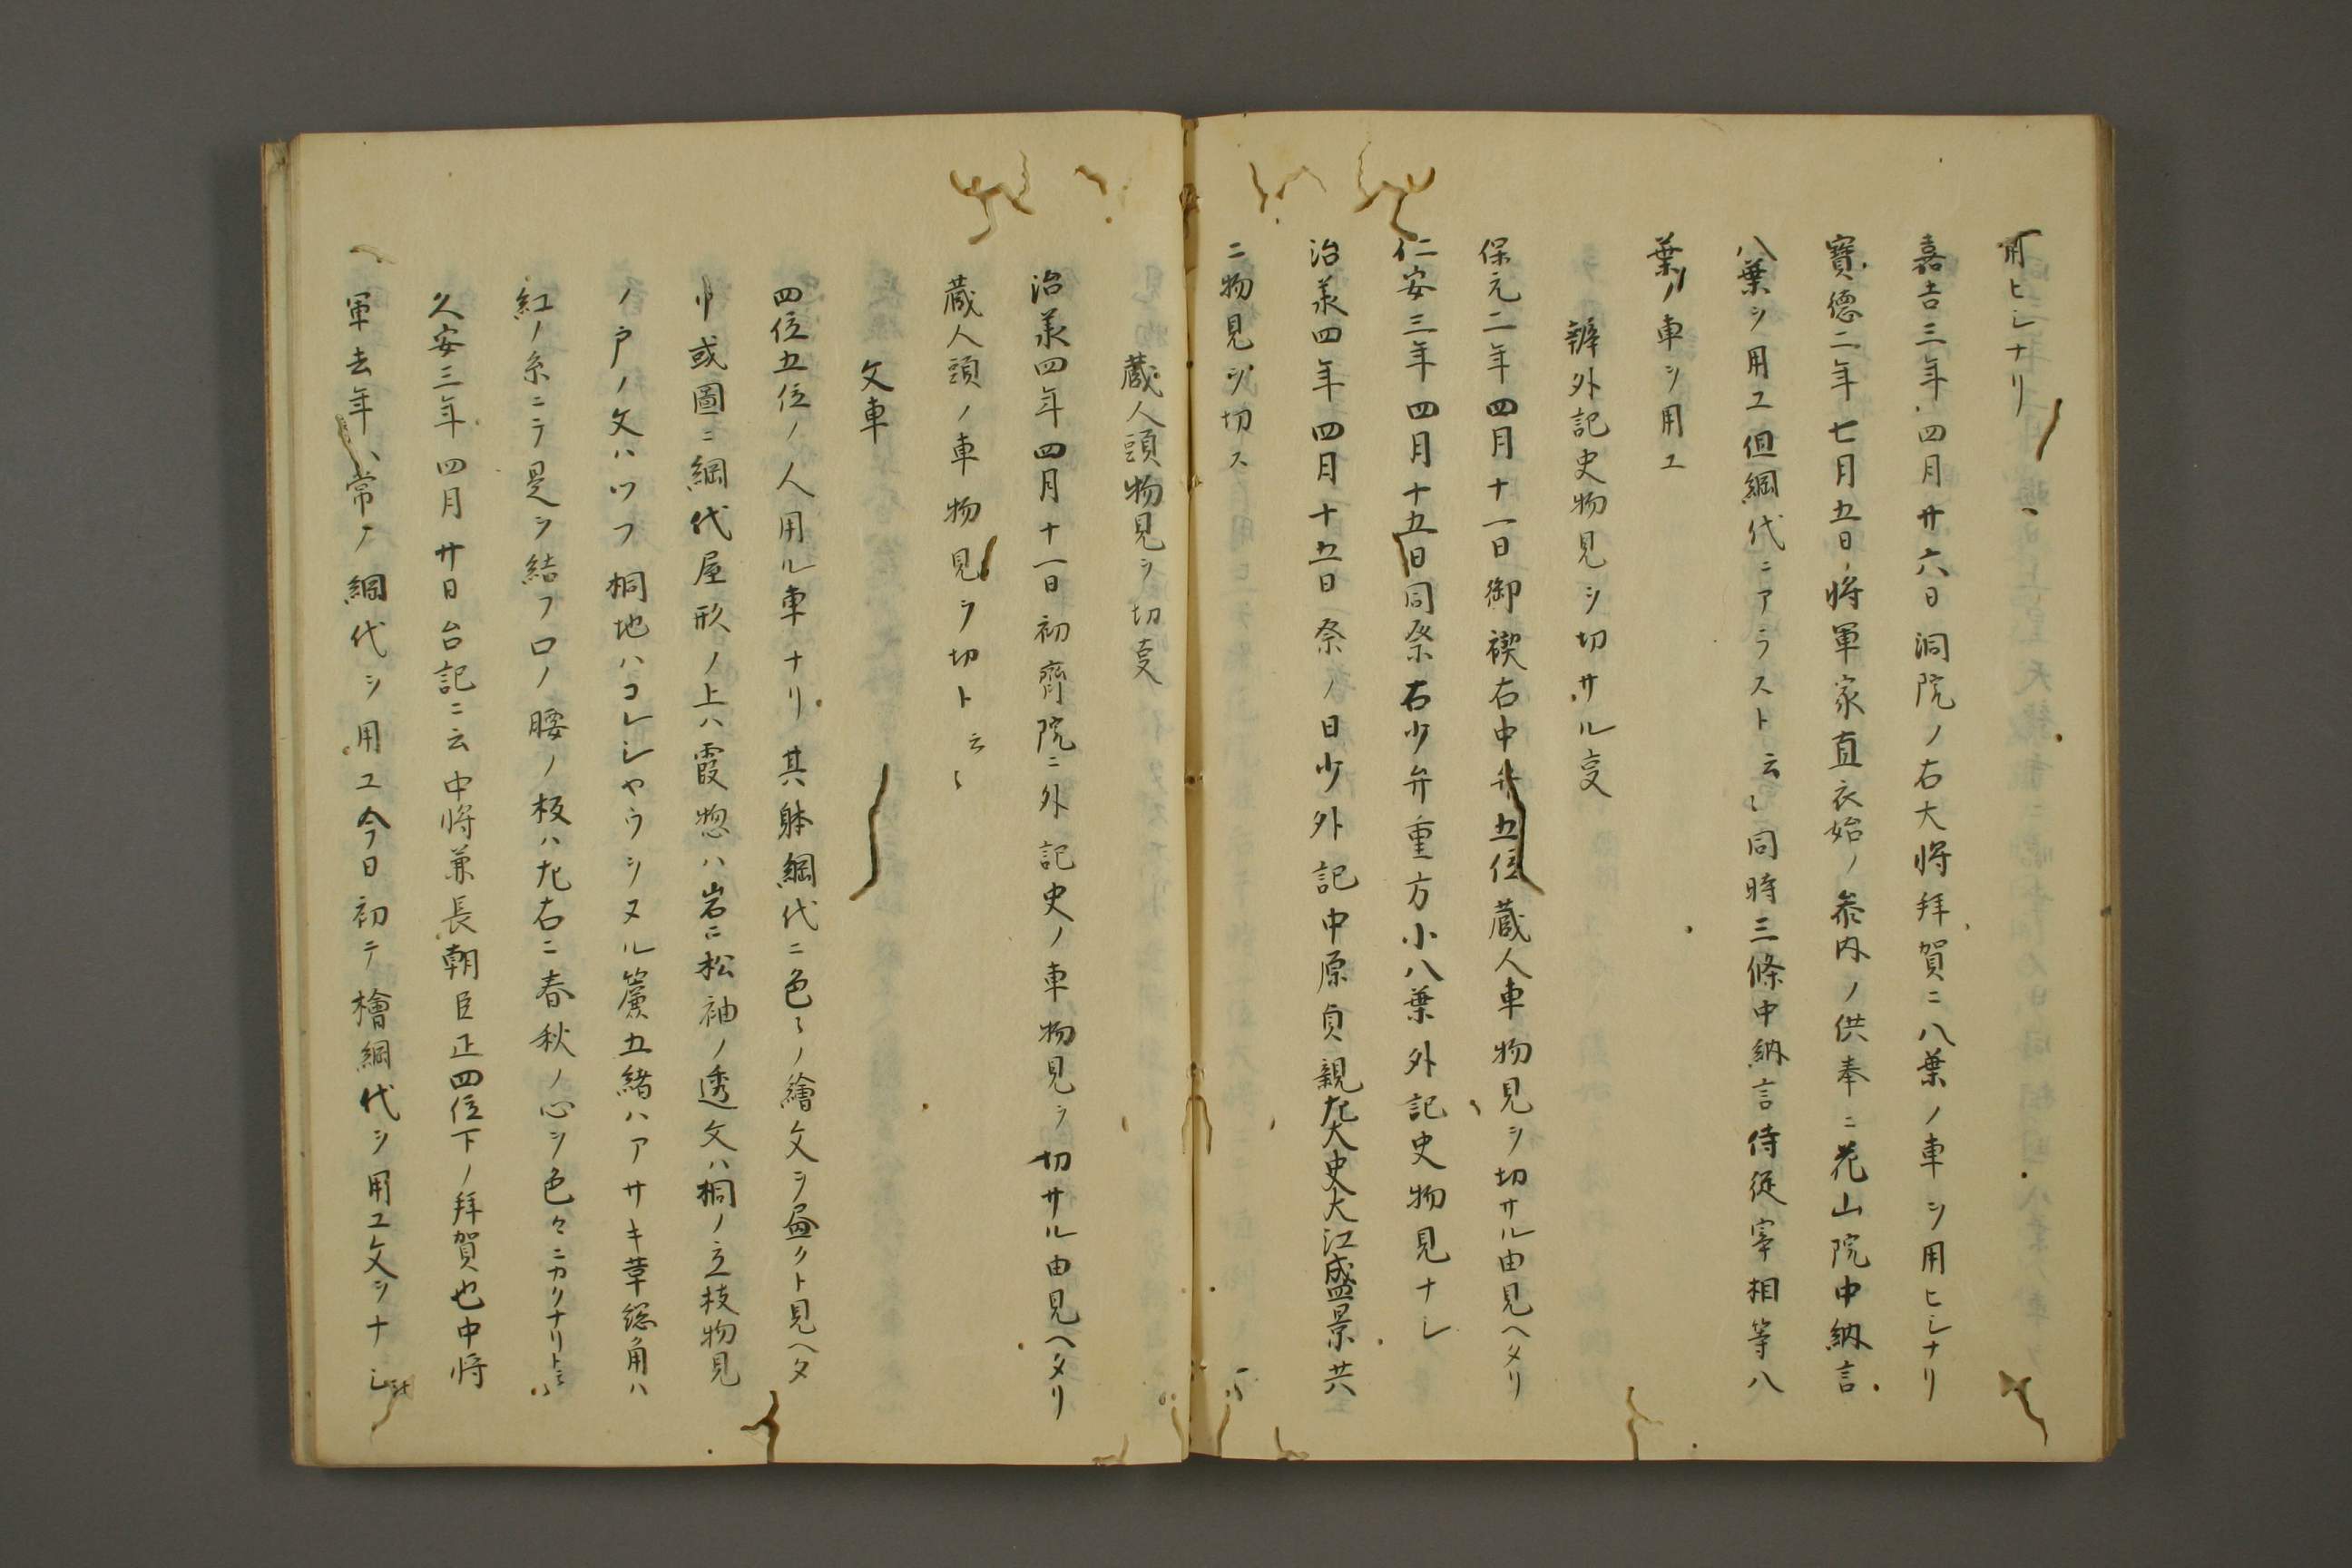 用ヒシナリ
嘉吉三年四月廿六日洞院ノ右大将拜賀ニ八葉ノ車ヲ用ヒシナリ
寶德二年七月五日将軍家直衣始ノ叅内ノ供奉ニ花山院中納言
八葉ヲ用ユ但網代ニアラスト云〻同時三條中納言侍従宰相等八
葉ノ車ヲ用ユ
辨外記史物見ヲ切サル叓
保元二年四月十一日御禊右中弁五位蔵人車物見ヲ切サル由見ヘタリ
仁安三年四月十五日同祭右少弁重方小八葉外記史物見ナシ
治羕四年四月十五日祭ノ日少外記中原貞親左大史大江盛景共
ニ物見ヲ切ス
蔵人頭物見ヲ切叓
治羕四年四月十一日初齊院ニ外記史ノ車物見ヲ切サル由見ヘタリ
蔵人頭ノ車物見ヲ切ト云〻
文車
四位五位ノ人用ル車ナリ其躰網代ニ色〻ノ繪文ヲ畫クト見ヘタ
リ或圖ニ網代屋形ノ上ハ霞惣ハ岩ニ松袖ノ透文ハ桐ノ立枝物見
ノ戸ノ文ハツフ桐地ハコレシヤウヲヌル簾五緒ハアサキ革総角ハ
紅ノ糸ニテ是ヲ結フ口ノ腰ノ板ハ左右ニ春秋ノ心ヲ色々ニカクナリト云
久安三年四月廿日台記ニ云中将兼長朝臣正四位下ノ拜賀也中将
軍去年ハ常ノ網代ヲ用ユ今日初テ檜網代ヲ用ユ文ヲナシ